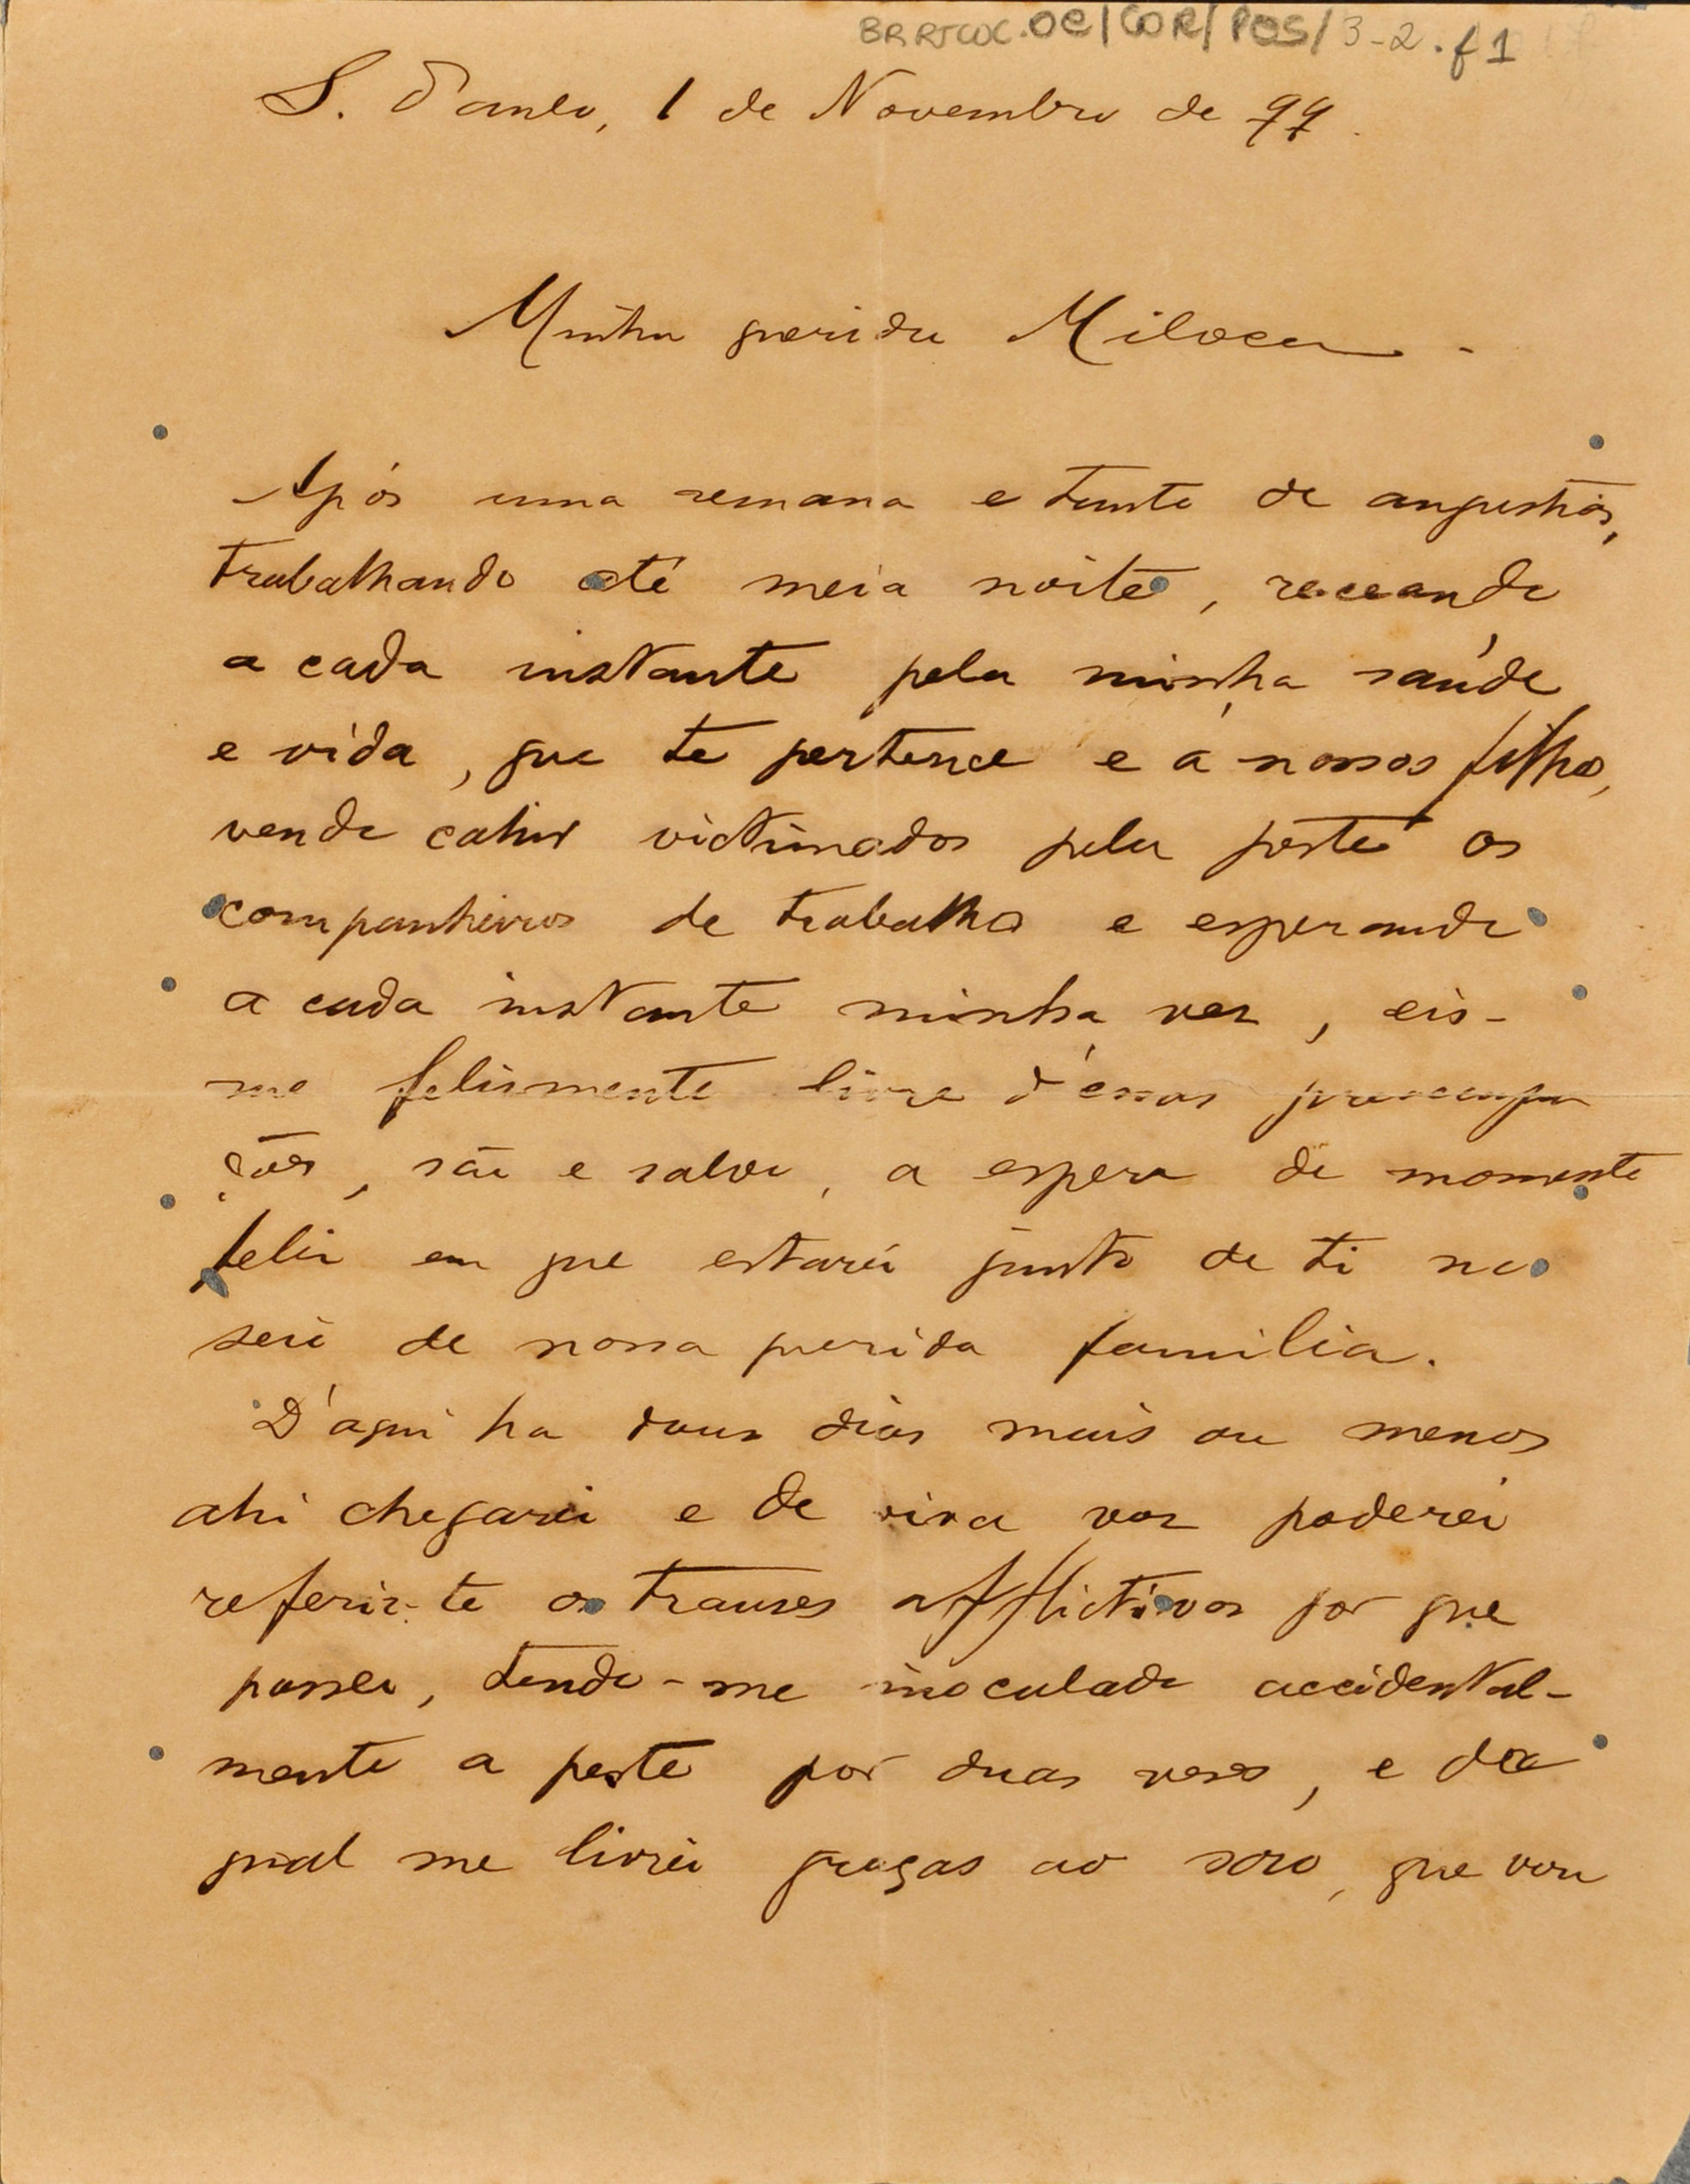 BR RJCOC.OC/COR/POS/3-2.f1
S. Paulo, 1 de Novembro de 99.
Minha querida Miloca.
Após uma semana e tanto de angustias,
trabalhando até meia noite, receando
a cada instante pela minha saúde
e vida, que te pertence e a nossos filhos,
vendo cahir victimados pela peste os
companheiros de trabalho e esperando
a cada instante minha vez, eis-
me felismente livre d'essas preoccupa
ções, são e salvo, a espera do momento
feliz em que estarei junto de ti no
seio de nossa querida familia.
D'aqui ha dous dias mais ou menos
ahi chegarei e de viva voz poderei
referir-te os transes afflictivos por que
passei, tendo-me inoculado accidental-
mente a peste por duas vezes, e da
qual me livrei graças ao soro, que vou